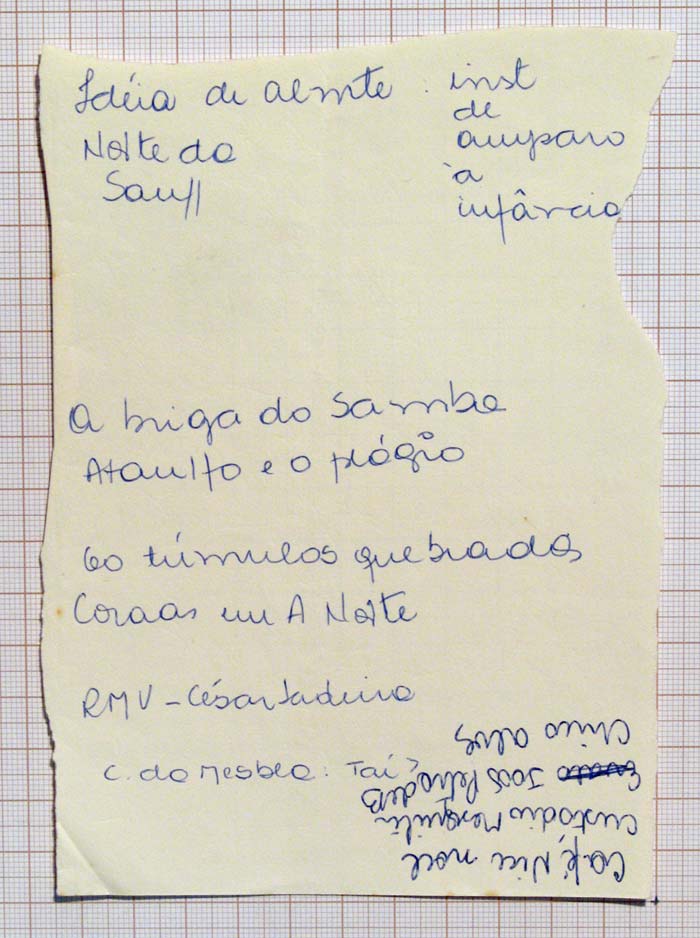 Idéia de Almte
Noite do
inst
de
amparo
à
infância
A briga do samba
Ataulfo e o plágio
60 túmulos quebrados
Coroas em A Noite
RMV - César Ladeira
C. da Mesbla: Taí?
Café Nice Noel
Custódio Mesquita
João Petra de B
Chico Alves